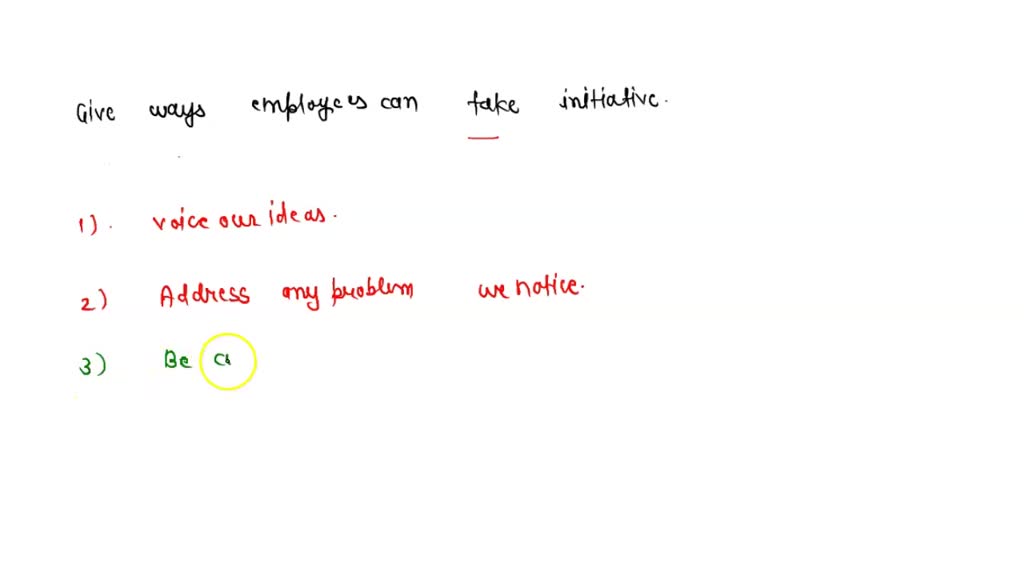 Give ways employees can take initiative.
1). voice our ideas.
2) Address any problem we notice.
3) Be